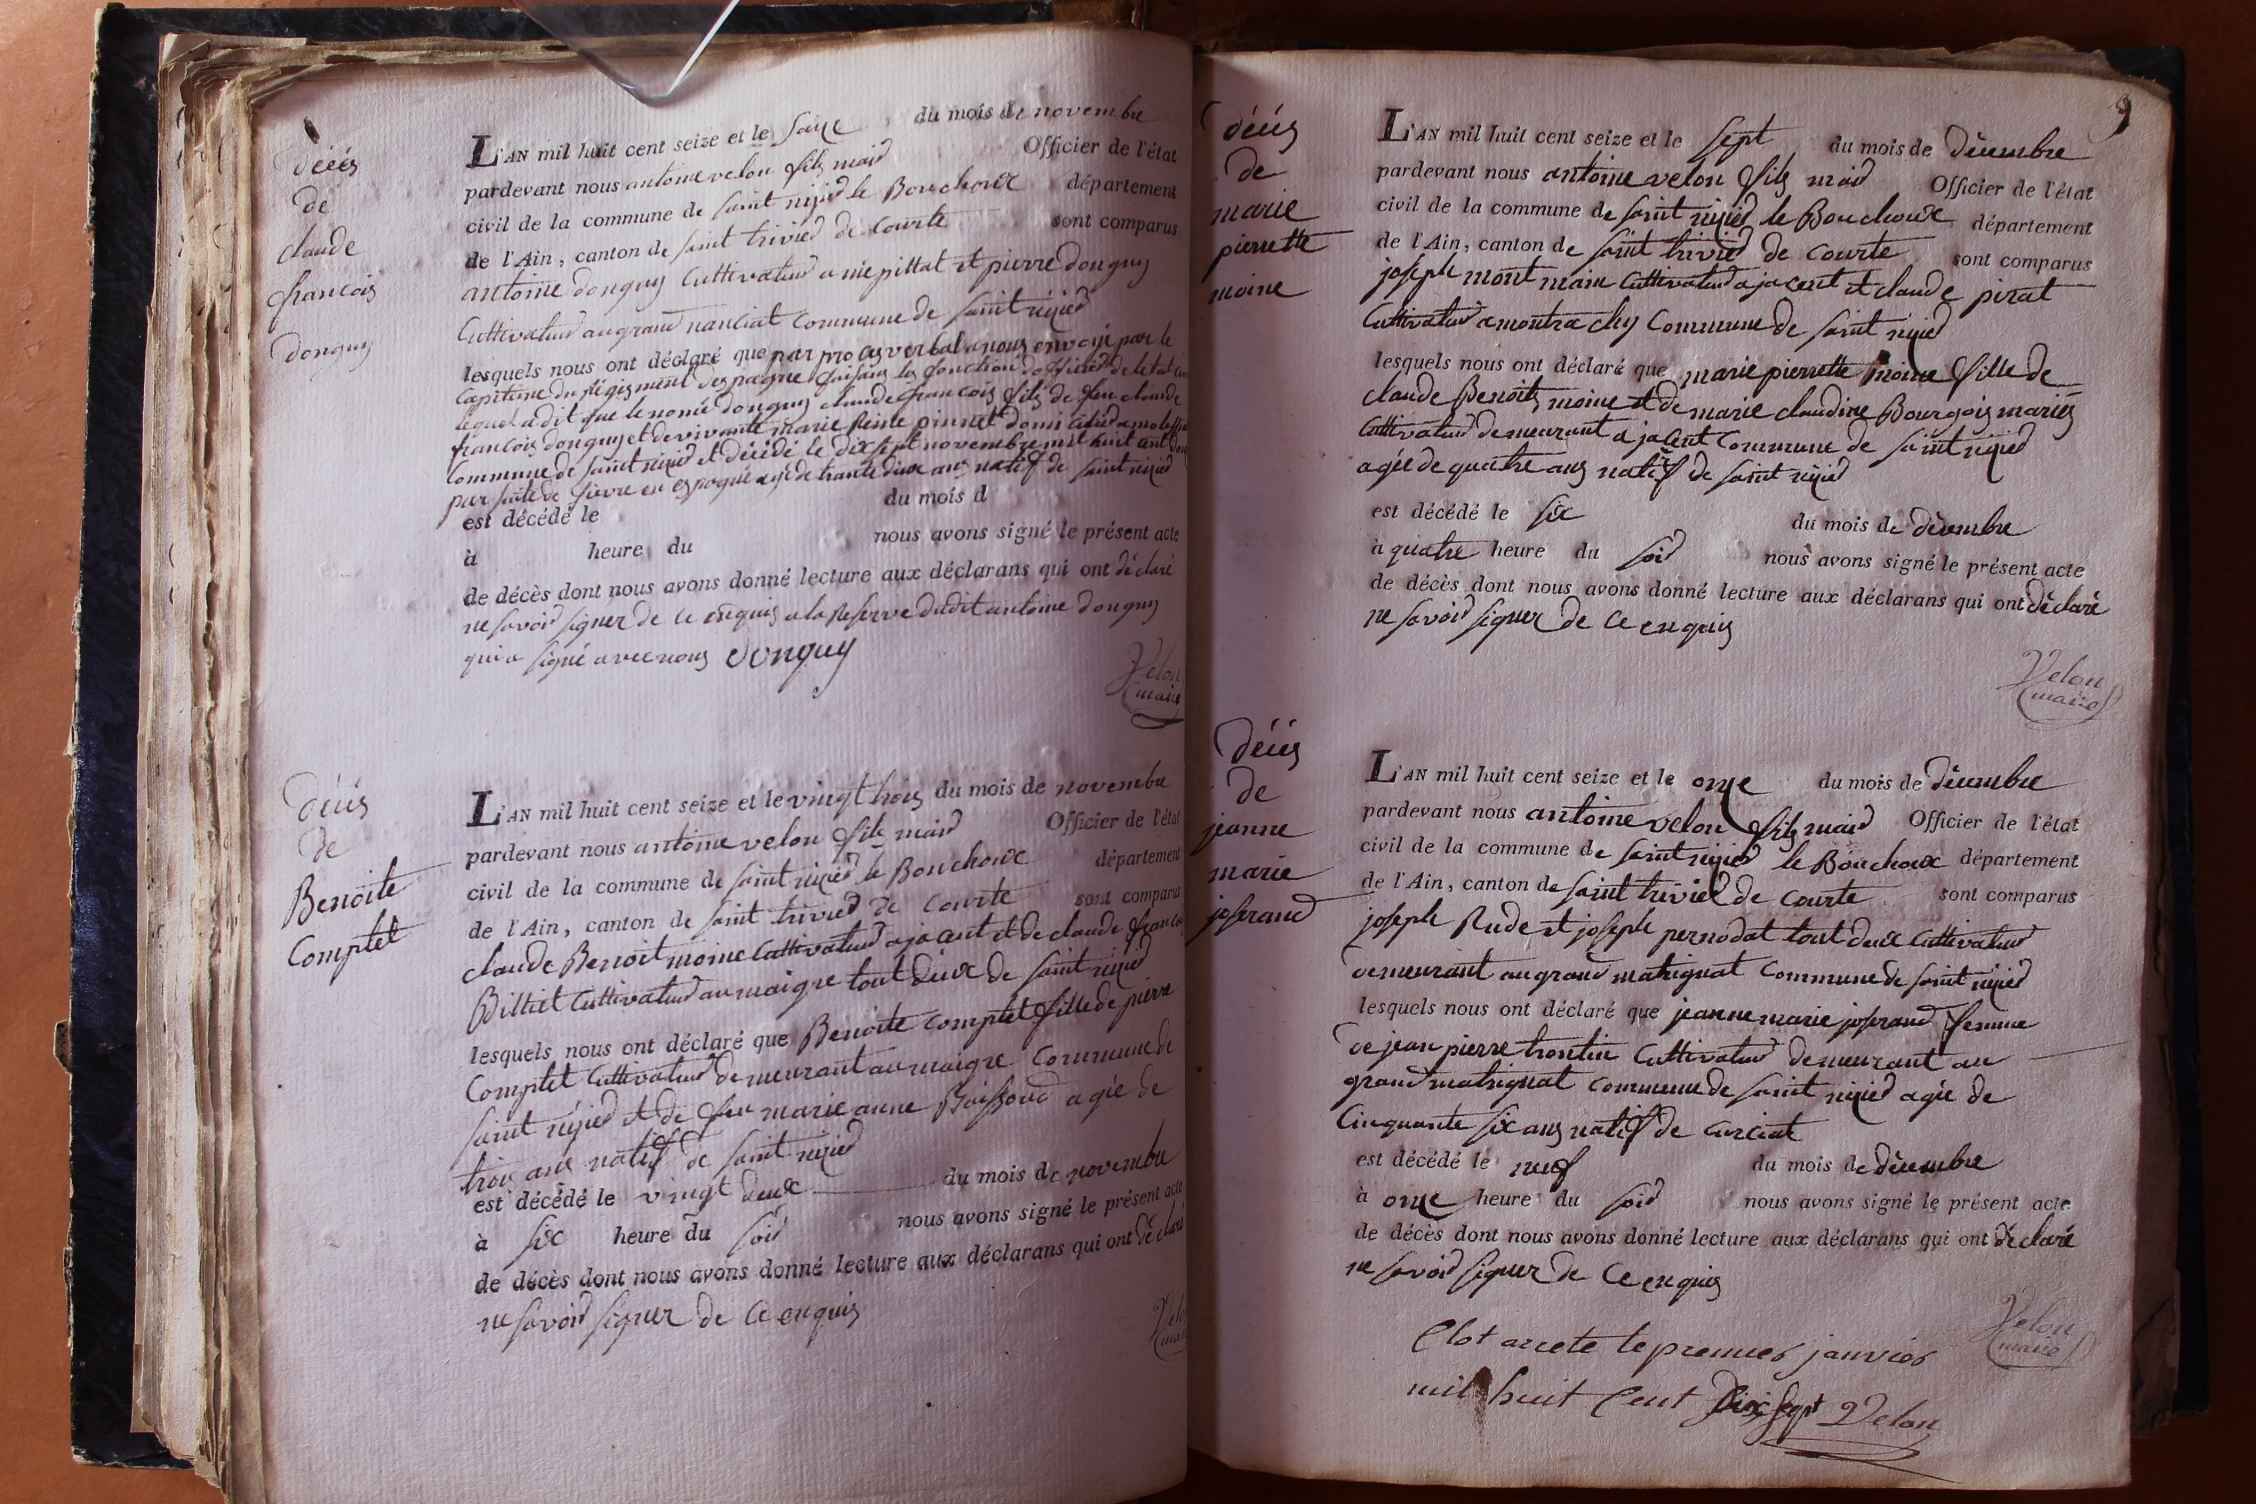 décés
de
claude
francois
donguy
L'AN mil huit cent seize et le saize du mois de novembre
pardevant nous antoine velon fils maire Officier de l'état
civil de la commune de saint nizier le Bouchoux département
de l'Ain, canton de saint trivier de courte sont comparus
antoine donguy Cultivateur a niepittat et pierre donguy
Cultivateur au grand nanciat commune de saint nizier
lesquels nous ont déclaré que par proces verbal a nous envoié par le
Capitaine du Régisment despagne faisant les fonction dofficier de letat
lequel a dit que le nomé donguy claude francois fils de feu claude
francois donguy et de vivante marie Reine pinnet domicilié a
commune de saint nizier et décédé le dix sept novembre mil huit cent
par suite de fievre en espagne agé de trante deux ans natif de saint nizier
est décédé le du mois d
à heure du nous avons signé le présent acte
de décès dont nous avons donné lecture aux déclarans qui ont déclaré
ne savoir signer de ce enquis a la Reserve dudit antoine donguy
qui a signé avec nous donguy
Velon
maire
décés
de
Benoite
Complet
L'AN mil huit cent seize et le vingt trois du mois de novembre
pardevant nous antoine velon fils maire Officier de l'état
civil de la commune de saint nizier le Bouchoux département
de l'Ain, canton de saint trivier de courte sont comparus
claude Benoit moine Cultivateur a jacent et de claude francois
Billiet Cultivateur au maigre tout deux de saint nizier
lesquels nous ont déclaré que Benoite complet fille de pierre
Complet Cultivateur demeurant au maigre commune de
saint nizier et de feu marie anne Boissoud agée de
trois ans natif de saint nizier
est décédé le vingt deux du mois de novembre
à six heure du soir nous avons signé le présent acte
de décès dont nous avons donné lecture aux déclarans qui ont déclaré
ne savoir signer de ce enquis
9
décés
de
marie
pierrette
moine
L'AN mil huit cent seize et le sept du mois de décembre
pardevant nous antoine velon fils maire Officier de l'état
civil de la commune de saint nizier le Bouchoux département
de l'Ain, canton de saint trivier de courte sont comparus
joseph mont main Cultivateur a jacent et claude pirat
Cultivateur a montrachy commune de saint nizier
lesquels nous ont déclaré que marie pierrette moine fille de
claude Benoit moine et de marie claudine Bourgois mariés
Cultivateur demeurant a jacent commune de saint nizier
agée de quatre ans natif de saint nizier
est décédé le six du mois de décembre
à quatre heure du soir nous avons signé le présent acte
de décès dont nous avons donné lecture aux déclarans qui ont déclaré
ne savoir signer de ce enquis
Velon
maire
décés
de
jeanne
marie
joserand
L'AN mil huit cent seize et le onze du mois de décembre
pardevant nous antoine velon fils maire Officier de l'état
civil de la commune de saint nizier le Bouchoux département
de l'Ain, canton de saint trivier de courte sont comparus
joseph Rude et joseph pernodat tout deux Cultivateur
demeurant au grand matrignat commune de saint nizier
lesquels nous ont déclaré que jeanne marie joserand femme
de jean pierre trontin Cultivateur demeurant au
grand matrignat commune de saint nizier agée de
Cinquante six ans natif de curciat
est décédé le neuf du mois de décembre
à onze heure du soir nous avons signé le présent acte
de décès dont nous avons donné lecture aux déclarans qui ont déclaré
ne savoir signer de ce enquis
Velon
maire
Clot arrete le premier janvier
mil huit Cent Dix sept Velon